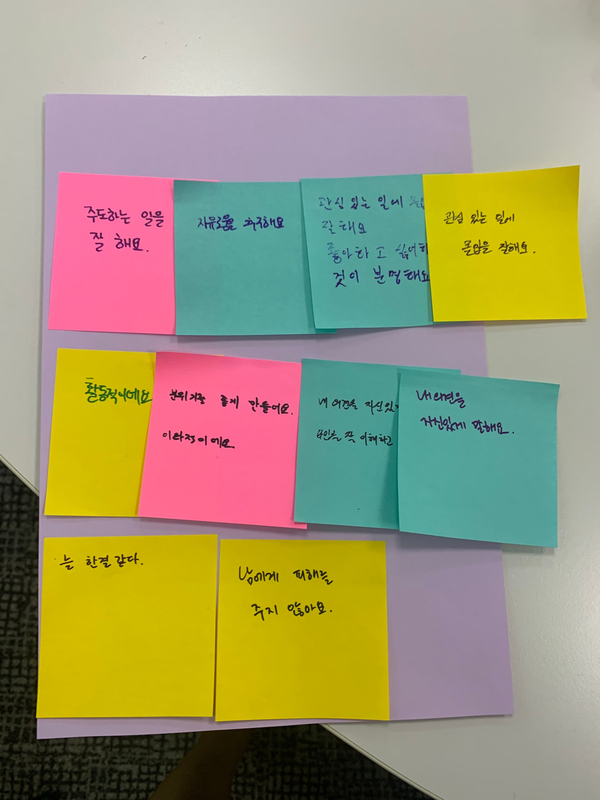 주도하는 일을
잘 해요.
자유로움 추구해요
관심 있는 일에 몰입
잘해요
좋아하고 싫어하
것이 분명해요
관심 있는 일에
몰입을 잘해요.
활동적이에요
분위기를 좋게 만들어요.
이타적이에요
내 의견을 자신있
남인를 꼭 이해하고
내 의견을
자신있게 말해요.
늘 한결같다.
남에게 피해를
주지 않아요.